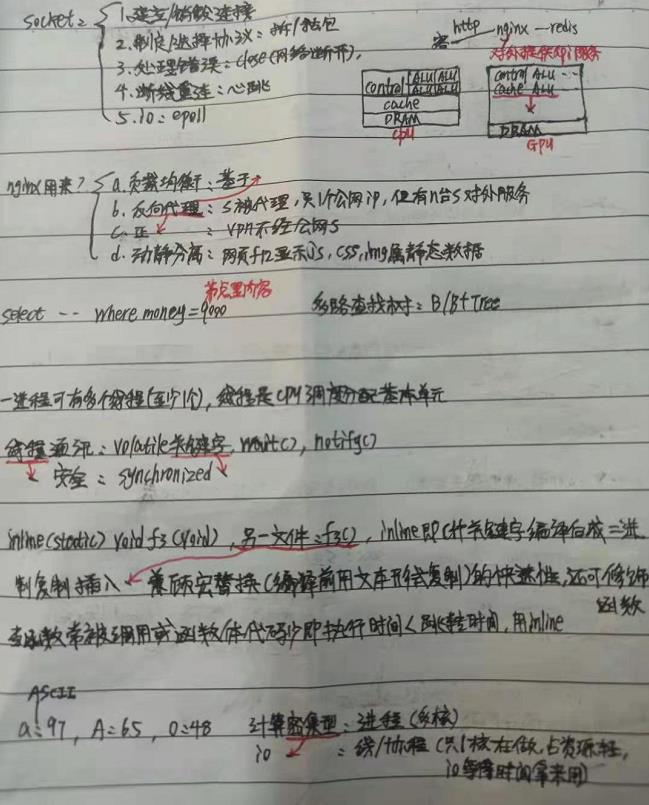 socket: 1.建立/销毁连接
2.制定/选择协议:拆/粘包
3.处理错误:close(网络断开),
4.断线重连:心跳
5.io:epoll
http
客 nginx — redis
对外提供api服务
control ALU ALU
ALU ALU
cache
DRAM
CPU
control ALU ...
cache ALU ...
DRAM
GPU
nginx用来? a.负载均衡:基于
b.反向代理:S被代理,只1个公网ip,但有n台S对外服务
c.正 :vpn不经公网S
d.动静分离:网页f12显示js,css,img属静态数据
节点里内容
select -- where money=9000 多路查找树:B/B+Tree
一进程可有多个线程(至少1个),线程是CPU调度分配基本单元
线程通讯:volatile关键字,wait(),notify()
安全:synchronized
inline(static) void f3(void),另一文件:f3(),inline即(补关键字编译后成二进
制复制插入 兼顾宏替换(编译前用文本形式复制)的快速性,还可修饰
函数
当函数常被调用或函数体代码少即执行时间<跳转时间,用inline
ASCII
a:97, A:65, 0:48 计算密集型:进程(多核)
io :线/协程(只1核在做,占资源轻,
io等待时间拿来用)